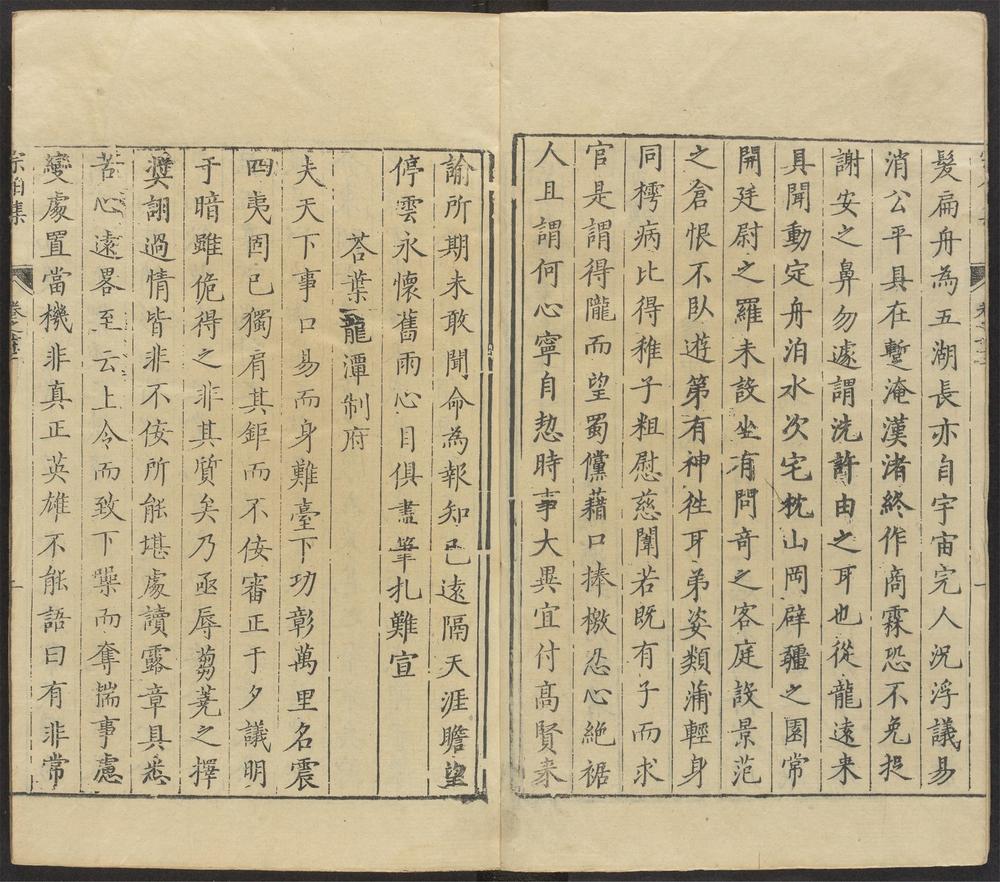 髮扁舟為五湖長亦自宇宙完人况浮議易
消公平具在蹔淹漢渚終作商霖恐不免捉
謝安之鼻勿遽謂洗許由之耳也從龍遠来
具聞動定舟泊水次宅枕山岡辟疆之園常
開廷尉之羅未設坐有問竒之客庭設景范
之倉恨不臥遊第有神徃耳弟姿類蒲輕身
同樗病比得稚子粗慰慈闈若既有子而求
官是謂得隴而望蜀儻藉口捧檄忍心絶裾
人且謂何心寧自愸時事大異宜付高賢来
諭所期未敢聞命為報知己遠隔天涯瞻望
停雲永懷舊雨心目俱盡筆扎難宣
荅葉龍潭制府
夫天下事口易而身難臺下功彰萬里名震
四夷固已獨肩其鉅而不佞審正于夕議明
于暗雖佹得之非其質矣乃亟辱蒭蕘之擇
奬詡過情皆非不佞所能堪處讀露章具悉
苦心遠畧至云上令而致下罺而奪揣事慮
變處置當機非真正英雄不能語曰有非常
宗伯集